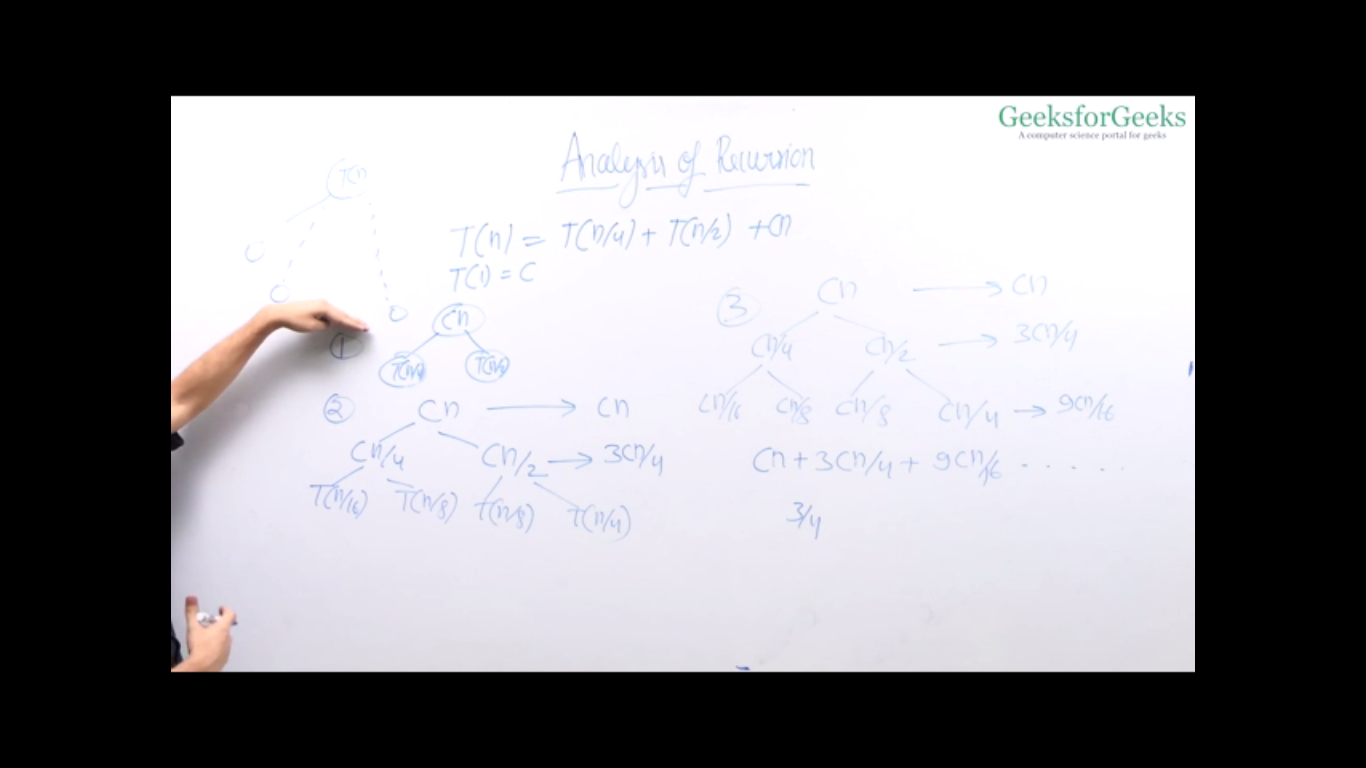 GeeksforGeeks
A computer science portal for geeks
Analysis of Recursion
T(n)
T(n) = T(n/4) + T(n/2) + Cn
T(1) = C
1
Cn
T(n/4)
2
Cn → Cn
Cn/4 Cn/2 → 3Cn/4
T(n/16) T(n/8) T(n/8) T(n/4)
3
Cn → Cn
Cn/4 Cn/2 → 3Cn/4
Cn/16 Cn/8 Cn/8 Cn/4 → 9Cn/16
Cn + 3Cn/4 + 9Cn/16 . . . . . .
3/4